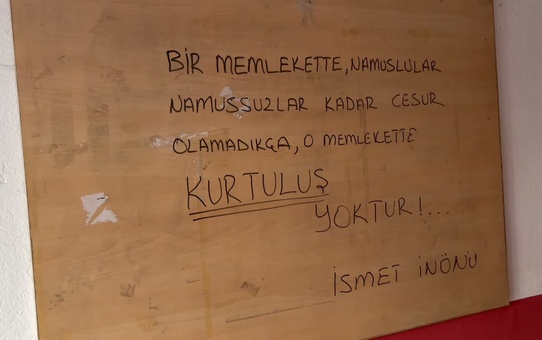 BİR MEMLEKETTE, NAMUSLULAR
NAMUSSUZLAR KADAR CESUR
OLAMADIKÇA, O MEMLEKETTE
KURTULUŞ
YOKTUR!...
İSMET İNÖNÜ